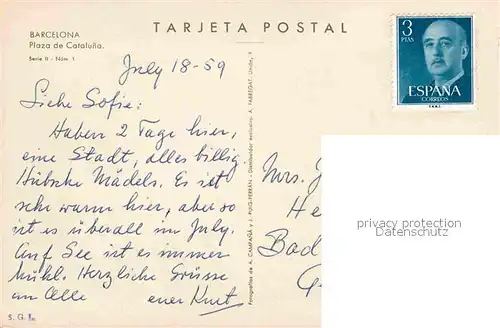 TARJETA POSTAL
BARCELONA
Plaza de Cataluña.
Serie II - Núm. 1
3
PTAS
ESPAÑA
CORREOS
July 18-59
Liebe Sofie:
Haben 2 Tage hier,
eine Stadt, alles billig.
Hübsche Mädels. Es ist
sehr warm hier, aber so
ist es überall im July.
Auf See ist es immer
kühl. Herzliche Grüsse
an Alle euer Kurt
Mrs. J
He
Bad
G
privacy protection
Fotografías de A. CAMPAÑÁ y J. PUIG-FERRÁN - Distribuidor exclusivo: A. FABREGAT,
S. G. E.